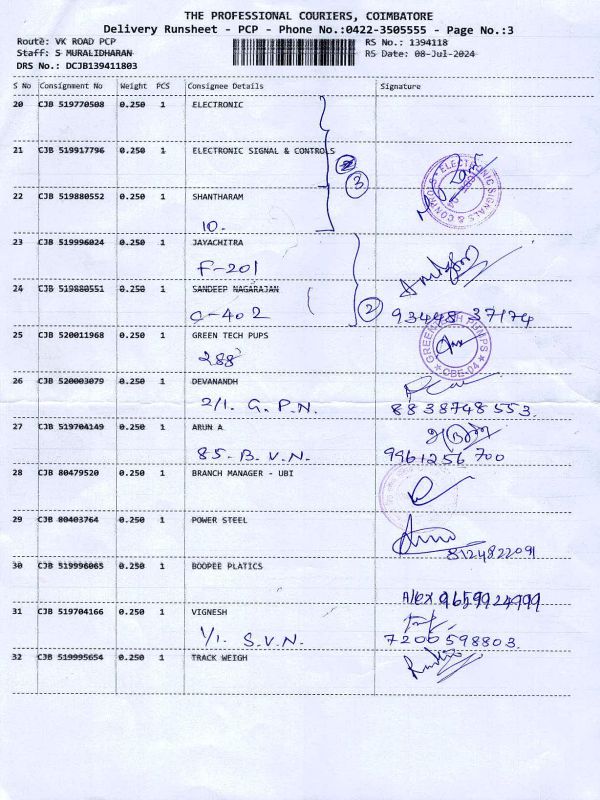 THE PROFESSIONAL COURIERS, COIMBATORE
Delivery Runsheet - PCP - Phone No.:0422-3505555 - Page No.:3
Route: VK ROAD PCP RS No.: 1394118
Staff: S MURALIDHARAN RS Date: 08-Jul-2024
DRS No.: DCJB139411803
S No Consignment No Weight PCS Consignee Details Signature
20 CJB 519770508 0.250 1 ELECTRONIC
21 CJB 519917796 0.250 1 ELECTRONIC SIGNAL & CONTROLS
3
ELECTRONIC SIGNALS & CONTROLS
22 CJB 519880552 0.250 1 SHANTHARAM
10.
23 CJB 519996024 0.250 1 JAYACHITRA
F-201
24 CJB 519880551 0.250 1 SANDEEP NAGARAJAN
C-402 2 93448 37174
25 CJB 520011968 0.250 1 GREEN TECH PUPS
288
GREEN TECH PUMPS CBE-04
26 CJB 520003079 0.250 1 DEVANANDH
2/1. G.P.N. 8838748553.
27 CJB 519704149 0.250 1 ARUN A
85-B.V.N. 9961256700
28 CJB 80479520 0.250 1 BRANCH MANAGER - UBI
29 CJB 80403764 0.250 1 POWER STEEL
8124822091
30 CJB 519996065 0.250 1 BOOPEE PLATICS
Alex 9659924999
31 CJB 519704166 0.250 1 VIGNESH
1/1. S.V.N. 7200598803.
32 CJB 519995654 0.250 1 TRACK WEIGH